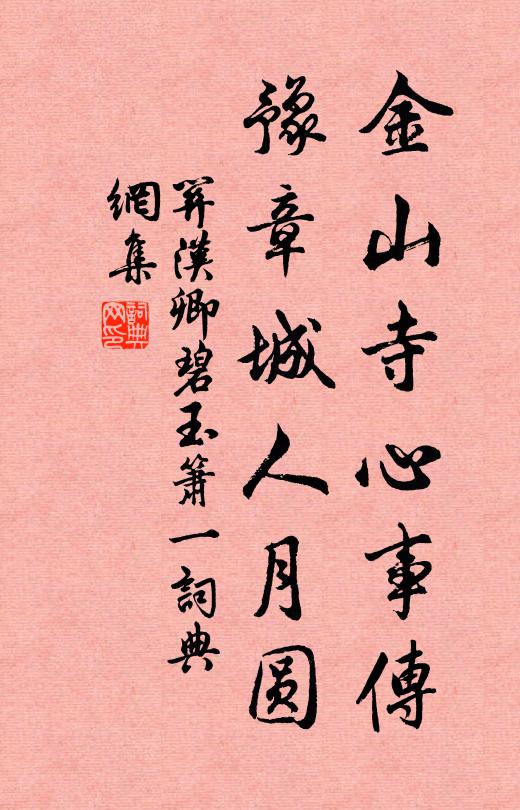 金山寺心事傳
豫章城人月圓
關漢卿碧玉簫一詞典
網集
詞典
网印